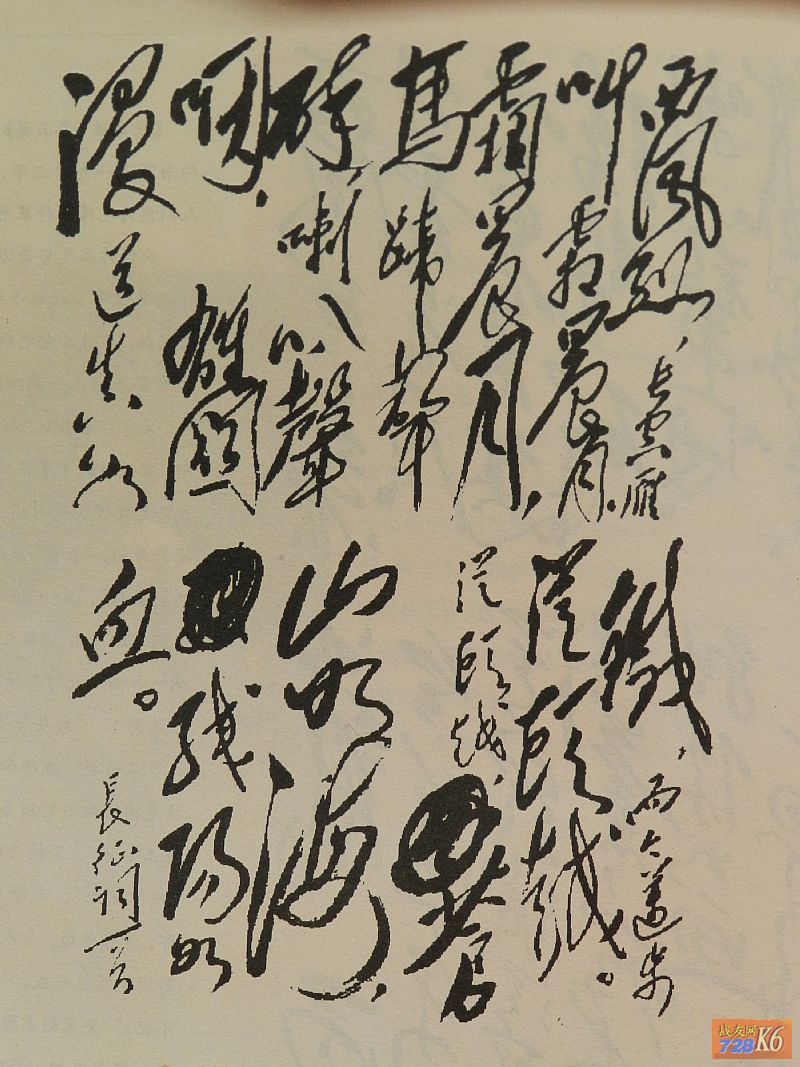 西風烈，長空雁
叫霜晨月。
霜晨月，
馬蹄聲
碎，喇叭聲
咽，雄關
漫道真如
鐵，而今邁步
從頭越。
從頭越，
蒼
山如海，
残陽如
血。
長征詞一首
战友网
728K6